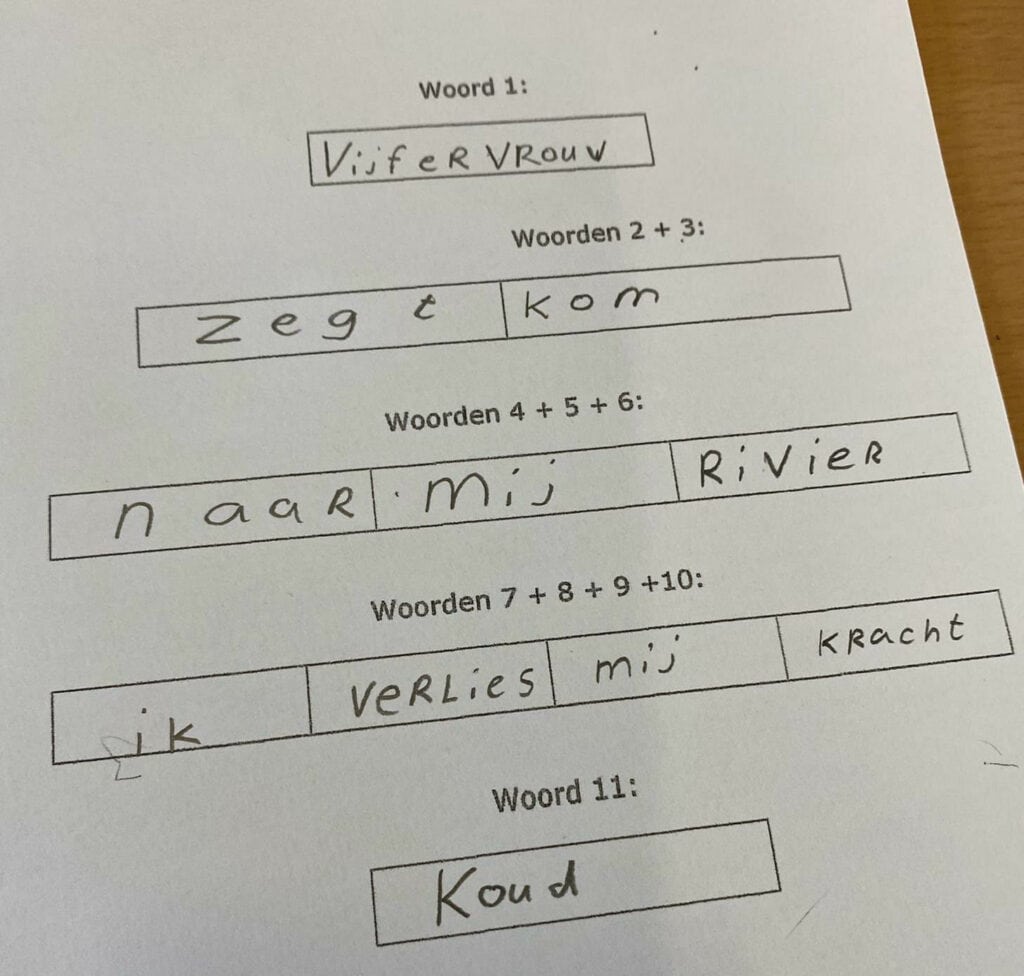 Woord 1:
VijfeR VRouw
Woorden 2 + 3:
zegt kom
Woorden 4 + 5 + 6:
naaR mij RiVieR
Woorden 7 + 8 + 9 +10:
ik VeRLies mij KRacht
Woord 11:
Koud